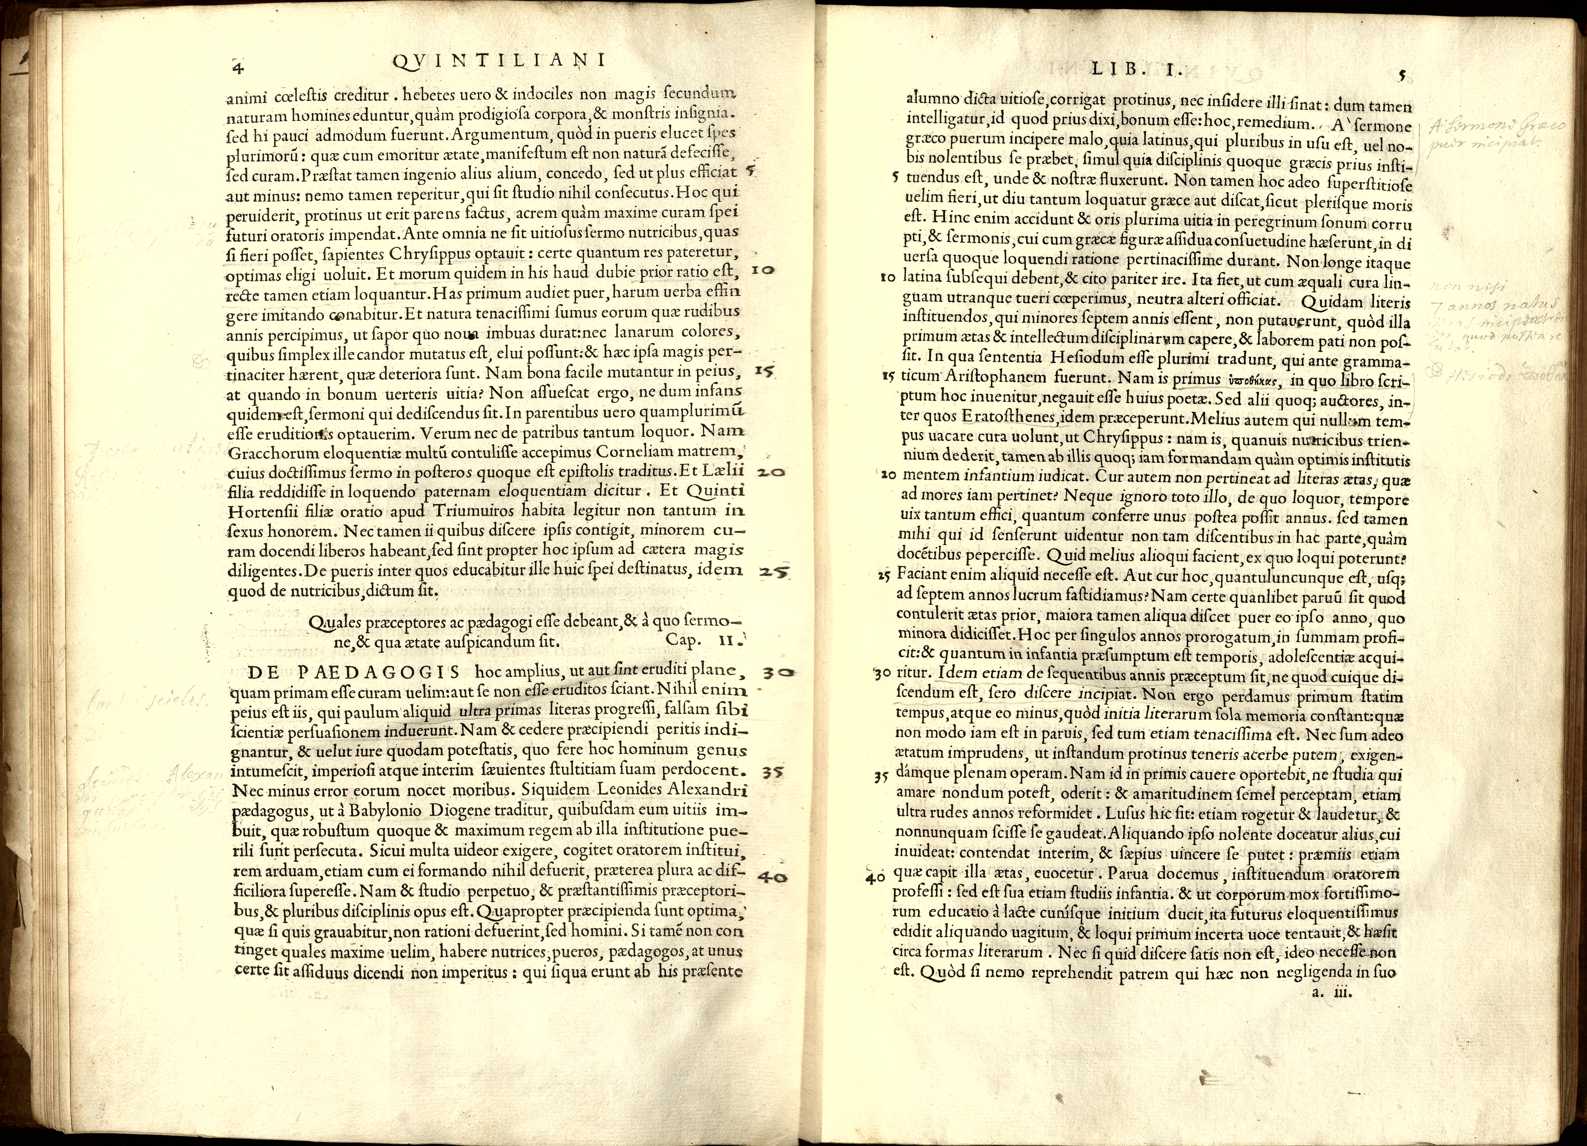 4
QVINTILIANI
animi cœlestis creditur . hebetes uero & indociles non magis secundum
naturam homines eduntur, quàm prodigiosa corpora, & monstris insignia.
sed hi pauci admodum fuerunt. Argumentum, quòd in pueris elucet spes
plurimorū: quæ cum emoritur ætate, manifestum est non naturā defecisse,
sed curam. Præstat tamen ingenio alius alium, concedo, sed ut plus efficiat 5
aut minus: nemo tamen reperitur, qui sit studio nihil consecutus. Hoc qui
peruiderit, protinus ut erit parens factus, acrem quàm maxime curam spei
futuri oratoris impendat. Ante omnia ne sit uitiosus sermo nutricibus, quas
si fieri posset, sapientes Chrysippus optauit: certe quantum res pateretur,
optimas eligi uoluit. Et morum quidem in his haud dubie prior ratio est, 10
recte tamen etiam loquantur. Has primum audiet puer, harum uerba effin
gere imitando conabitur. Et natura tenacissimi sumus eorum quæ rudibus
annis percipimus, ut sapor quo noua imbuas durat: nec lanarum colores,
quibus simplex ille candor mutatus est, elui possunt: & hæc ipsa magis per-
tinaciter hærent, quæ deteriora sunt. Nam bona facile mutantur in peius, 15
at quando in bonum uerteris uitia? Non assuescat ergo, ne dum infans
quidem est, sermoni qui dediscendus sit. In parentibus uero quamplurimū
esse eruditionis optauerim. Verum nec de patribus tantum loquor. Nam
Gracchorum eloquentiæ multū contulisse accepimus Corneliam matrem,
cuius doctissimus sermo in posteros quoque est epistolis traditus. Et Lælii 20
filia reddidisse in loquendo paternam eloquentiam dicitur . Et Quinti
Hortensii filiæ oratio apud Triumuiros habita legitur non tantum in
sexus honorem. Nec tamen ii quibus discere ipsis contigit, minorem cu-
ram docendi liberos habeant, sed sint propter hoc ipsum ad cætera magis
diligentes. De pueris inter quos educabitur ille huic spei destinatus, idem 25
quod de nutricibus, dictum sit.
Quales præceptores ac pædagogi esse debeant, & à quo sermo-
ne, & qua ætate auspicandum sit. Cap. II.
DE PAEDAGOGIS hoc amplius, ut aut sint eruditi plane, 30
quam primam esse curam uelim: aut se non esse eruditos sciant. Nihil enim
peius est iis, qui paulum aliquid ultra primas literas progressi, falsam sibi
scientiæ persuasionem induerunt. Nam & cedere præcipiendi peritis indi-
gnantur, & uelut iure quodam potestatis, quo fere hoc hominum genus
intumescit, imperiosi atque interim sæuientes stultitiam suam perdocent. 35
Nec minus error eorum nocet moribus. Siquidem Leonides Alexandri
pædagogus, ut à Babylonio Diogene traditur, quibusdam eum uitiis im-
buit, quæ robustum quoque & maximum regem ab illa institutione pue-
rili sunt persecuta. Sicui multa uideor exigere, cogitet oratorem institui,
rem arduam, etiam cum ei formando nihil defuerit, præterea plura ac dif- 40
ficiliora superesse. Nam & studio perpetuo, & præstantissimis præceptori-
bus, & pluribus disciplinis opus est. Quapropter præcipienda sunt optima,
quæ si quis grauabitur, non rationi defuerint, sed homini. Si tamē non con
tinget quales maxime uelim, habere nutrices, pueros, pædagogos, at unus
certe sit assiduus dicendi non imperitus : qui siqua erunt ab his præsente
LIB. I.
5
alumno dicta uitiose, corrigat protinus, nec insidere illi sinat: dum tamen
intelligatur, id quod prius dixi, bonum esse: hoc, remedium. A` sermone
græco puerum incipere malo, quia latinus, qui pluribus in usu est, uel no-
bis nolentibus se præbet, simul quia disciplinis quoque græcis prius insti-
5 tuendus est, unde & nostræ fluxerunt. Non tamen hoc adeo superstitiose
uelim fieri, ut diu tantum loquatur græce aut discat, sicut plerisque moris
est. Hinc enim accidunt & oris plurima uitia in peregrinum sonum corru
pti, & sermonis, cui cum græcæ figuræ assidua consuetudine hæserunt, in di
uersa quoque loquendi ratione pertinacissime durant. Non longe itaque
10 latina subsequi debent, & cito pariter ire. Ita fiet, ut cum æquali cura lin-
guam utranque tueri cœperimus, neutra alteri officiat. Quidam literis
instituendos, qui minores septem annis essent, non putauerunt, quòd illa
primum ætas & intellectum disciplinarum capere, & laborem pati non pos-
sit. In qua sententia Hesiodum esse plurimi tradunt, qui ante gramma-
15 ticum Aristophanem fuerunt. Nam is primus ὑποθήκας, in quo libro scri-
ptum hoc inuenitur, negauit esse huius poetæ. Sed alii quoq; auctores, in-
ter quos Eratosthenes, idem præceperunt. Melius autem qui nullum tem-
pus uacare cura uolunt, ut Chrysippus : nam is, quanuis nutricibus trien-
nium dederit, tamen ab illis quoq; iam formandam quàm optimis institutis
20 mentem infantium iudicat. Cur autem non pertineat ad literas ætas, quæ
ad mores iam pertinet? Neque ignoro toto illo, de quo loquor, tempore
uix tantum effici, quantum conferre unus postea possit annus. sed tamen
mihi qui id senserunt uidentur non tam discentibus in hac parte, quàm
docētibus pepercisse. Quid melius alioqui facient, ex quo loqui poterunt?
25 Faciant enim aliquid necesse est. Aut cur hoc, quantuluncunque est, usq;
ad septem annos lucrum fastidiamus? Nam certe quanlibet paruū sit quod
contulerit ætas prior, maiora tamen aliqua discet puer eo ipso anno, quo
minora didicisset. Hoc per singulos annos prorogatum, in summam profi-
cit: & quantum in infantia præsumptum est temporis, adolescentiæ acqui-
30 ritur. Idem etiam de sequentibus annis præceptum sit, ne quod cuique di-
scendum est, sero discere incipiat. Non ergo perdamus primum statim
tempus, atque eo minus, quòd initia literarum sola memoria constant: quæ
non modo iam est in paruis, sed tum etiam tenacissima est. Nec sum adeo
ætatum imprudens, ut instandum protinus teneris acerbe putem, exigen-
35 dámque plenam operam. Nam id in primis cauere oportebit, ne studia qui
amare nondum potest, oderit : & amaritudinem semel perceptam, etiam
ultra rudes annos reformidet . Lusus hic sit: etiam rogetur & laudetur, &
nonnunquam scisse se gaudeat. Aliquando ipso nolente doceatur alius, cui
inuideat: contendat interim, & sæpius uincere se putet : præmiis etiam
40 quæ capit illa ætas, euocetur . Parua docemus, instituendum oratorem
professi : sed est sua etiam studiis infantia. & ut corporum mox fortissimo-
rum educatio à lacte cunísque initium ducit, ita futurus eloquentissimus
edidit aliquando uagitum, & loqui primum incerta uoce tentauit, & hæsit
circa formas literarum . Nec si quid discere satis non est, ideo necesse non
est. Quòd si nemo reprehendit patrem qui hæc non negligenda in suo
a. iii.
A sermone Græco
puer incipiat.
non nisi
7 annos natus